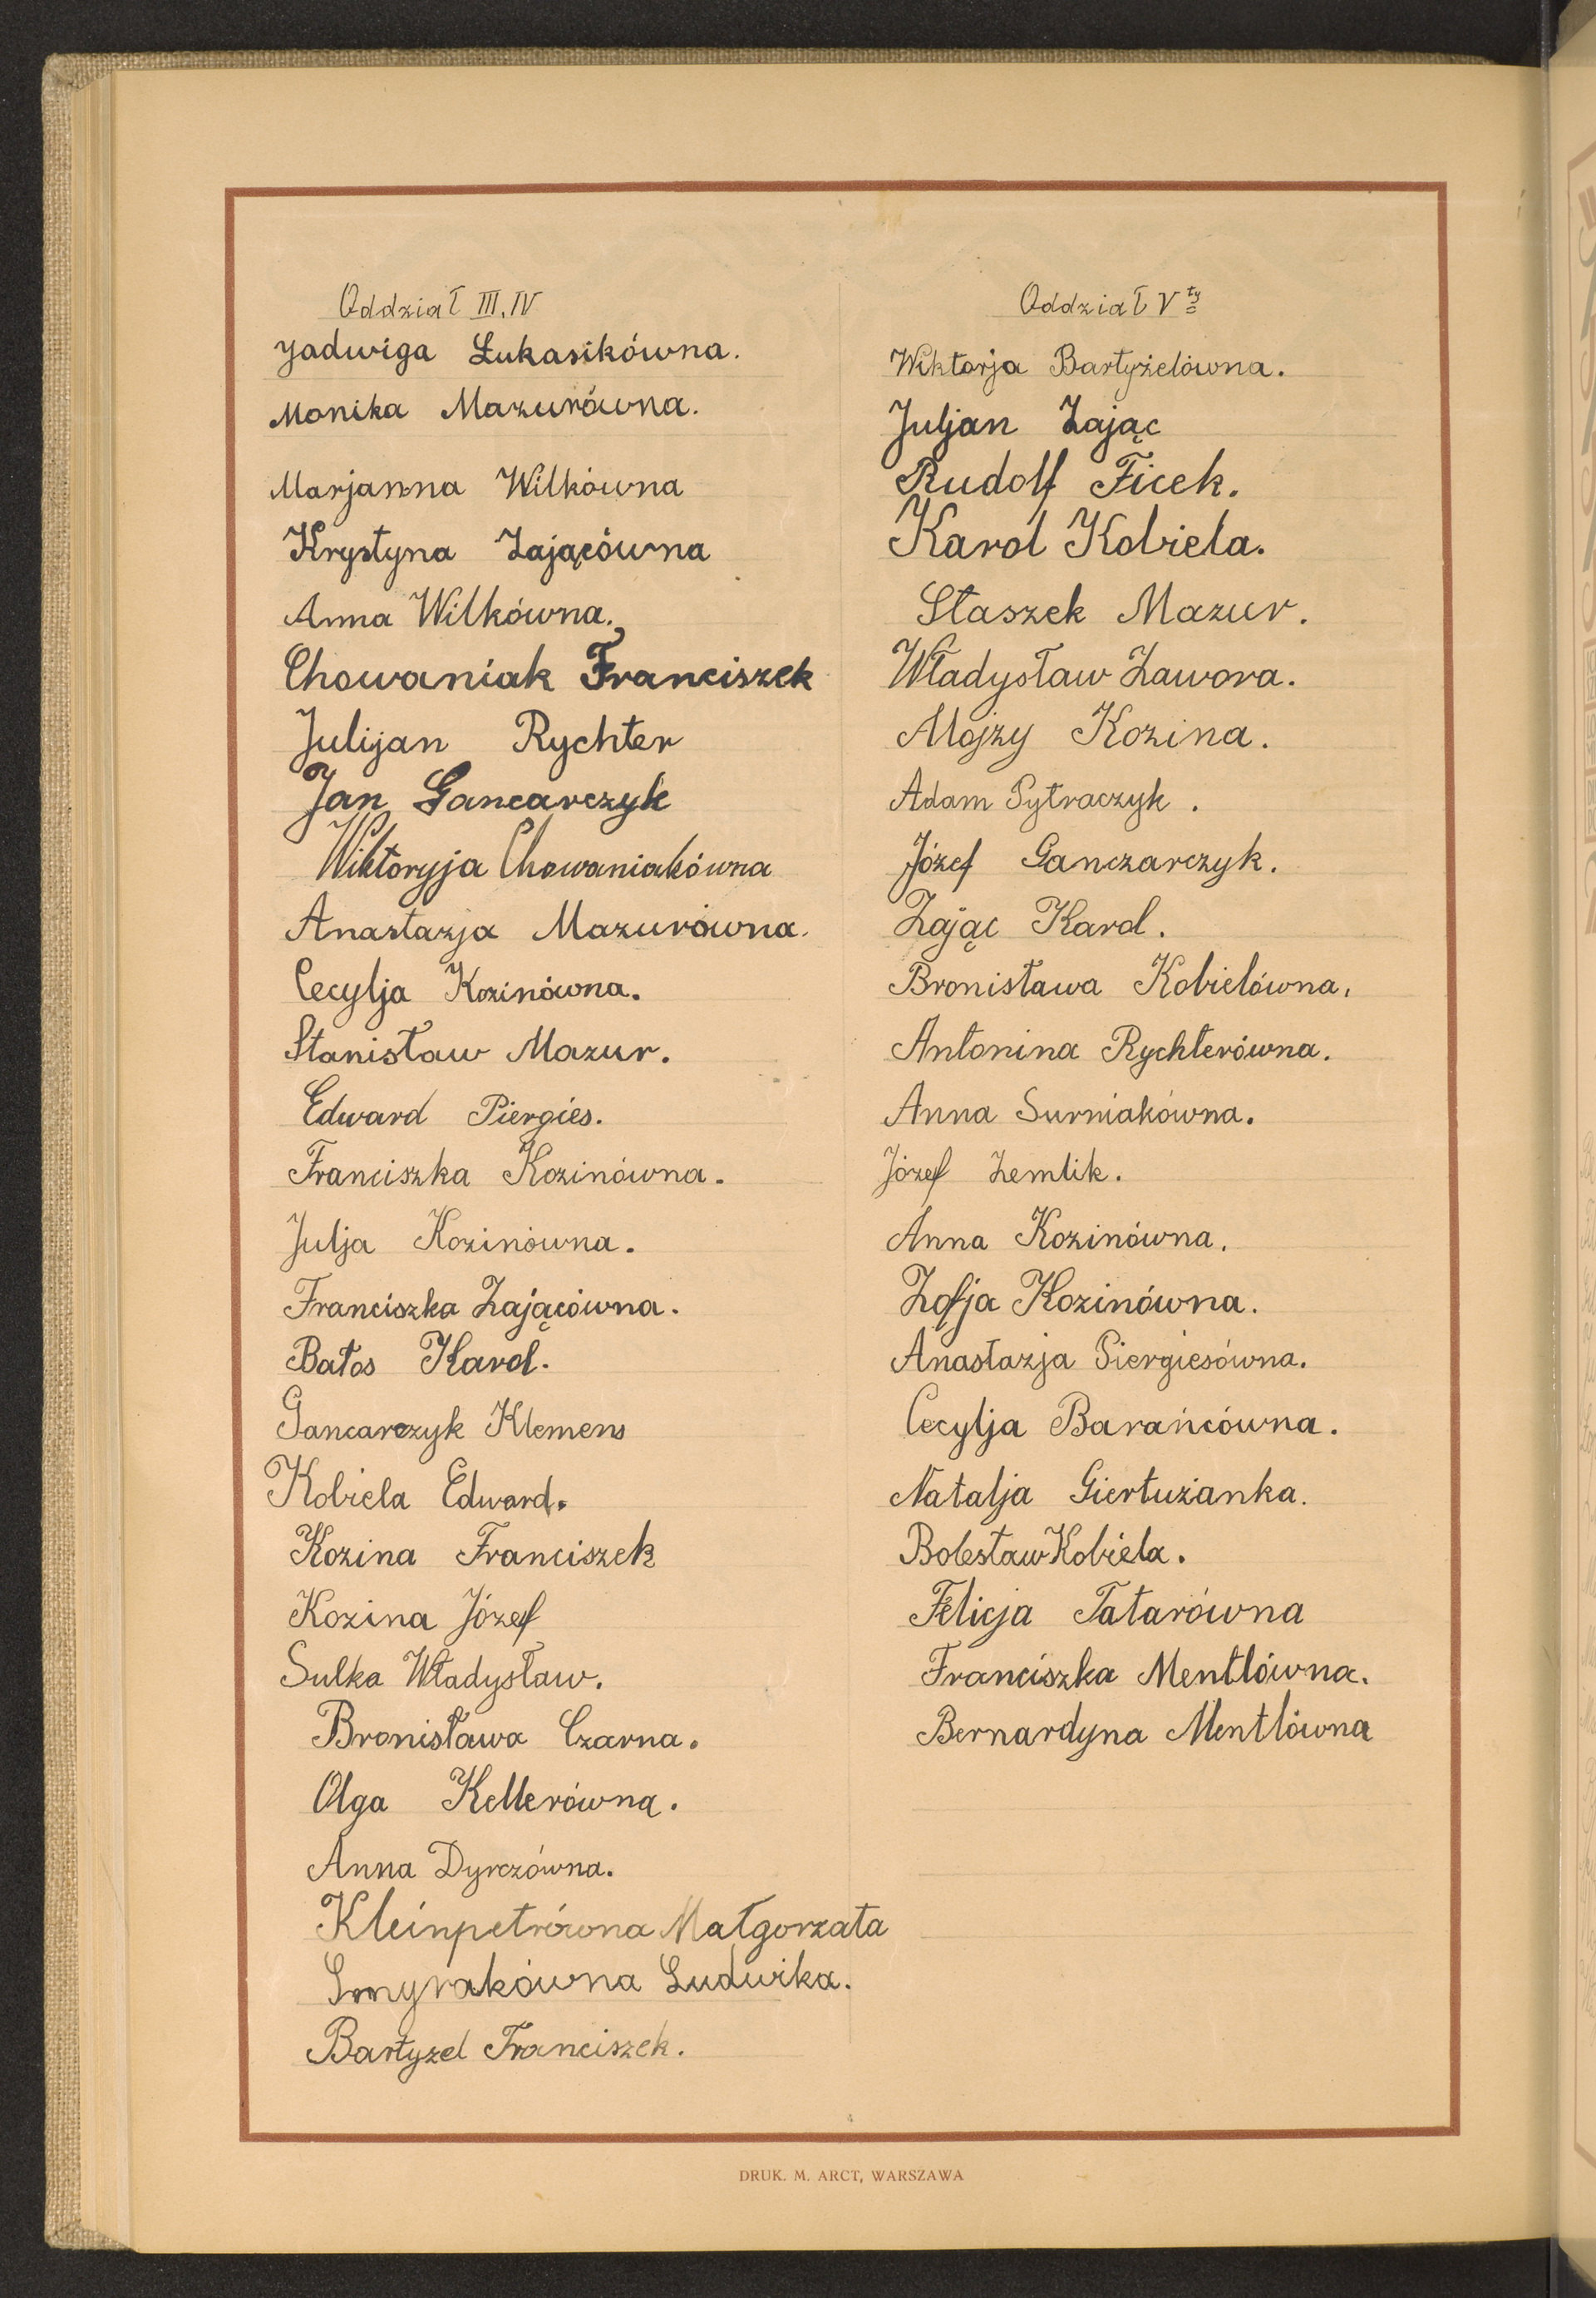 Oddział III, IV
Jadwiga Łukasikówna.
Monika Mazurówna.
Marjanna Wilkówna
Krystyna Zającówna
Anna Wilkówna.
Chowaniak Franciszek
Julijan Rychter
Jan Gancarczyk
Wiktoryja Chowaniakówna
Anastazja Mazurówna.
Cecylja Kozinówna.
Stanisław Mazur.
Edward Piergies.
Franciszka Kozinówna.
Julja Kozinówna.
Franciszka Zającówna.
Bałos Karol.
Gancarczyk Klemens
Kobiela Edward.
Kozina Franciszek
Kozina Józef
Sulka Władysław.
Bronisława Czarna.
Olga Kellerówna.
Anna Dyrczówna.
Kleinpetrówna Małgorzata
Smyrakówna Ludwika.
Bartyzel Franciszek.
Oddział V ty
Wiktorja Bartyżelówna.
Juljan Zając
Rudolf Ficek.
Karol Kobiela.
Staszek Mazur.
Władysław Zawora.
Alojzy Kozina.
Adam Pytraczyk.
Józef Ganczarczyk.
Zając Karol.
Bronisława Kobielówna.
Antonina Rychterówna.
Anna Surniakówna.
Józef Zemlik.
Anna Kozinówna.
Zofja Kozinówna.
Anastazja Piergiesówna.
Cecylja Barańcówna.
Natalja Giertużanka.
Bolesław Kobiela.
Felicja Tatarówna
Franciszka Mentlówna.
Bernardyna Mentlówna
DRUK. M. ARCT, WARSZAWA